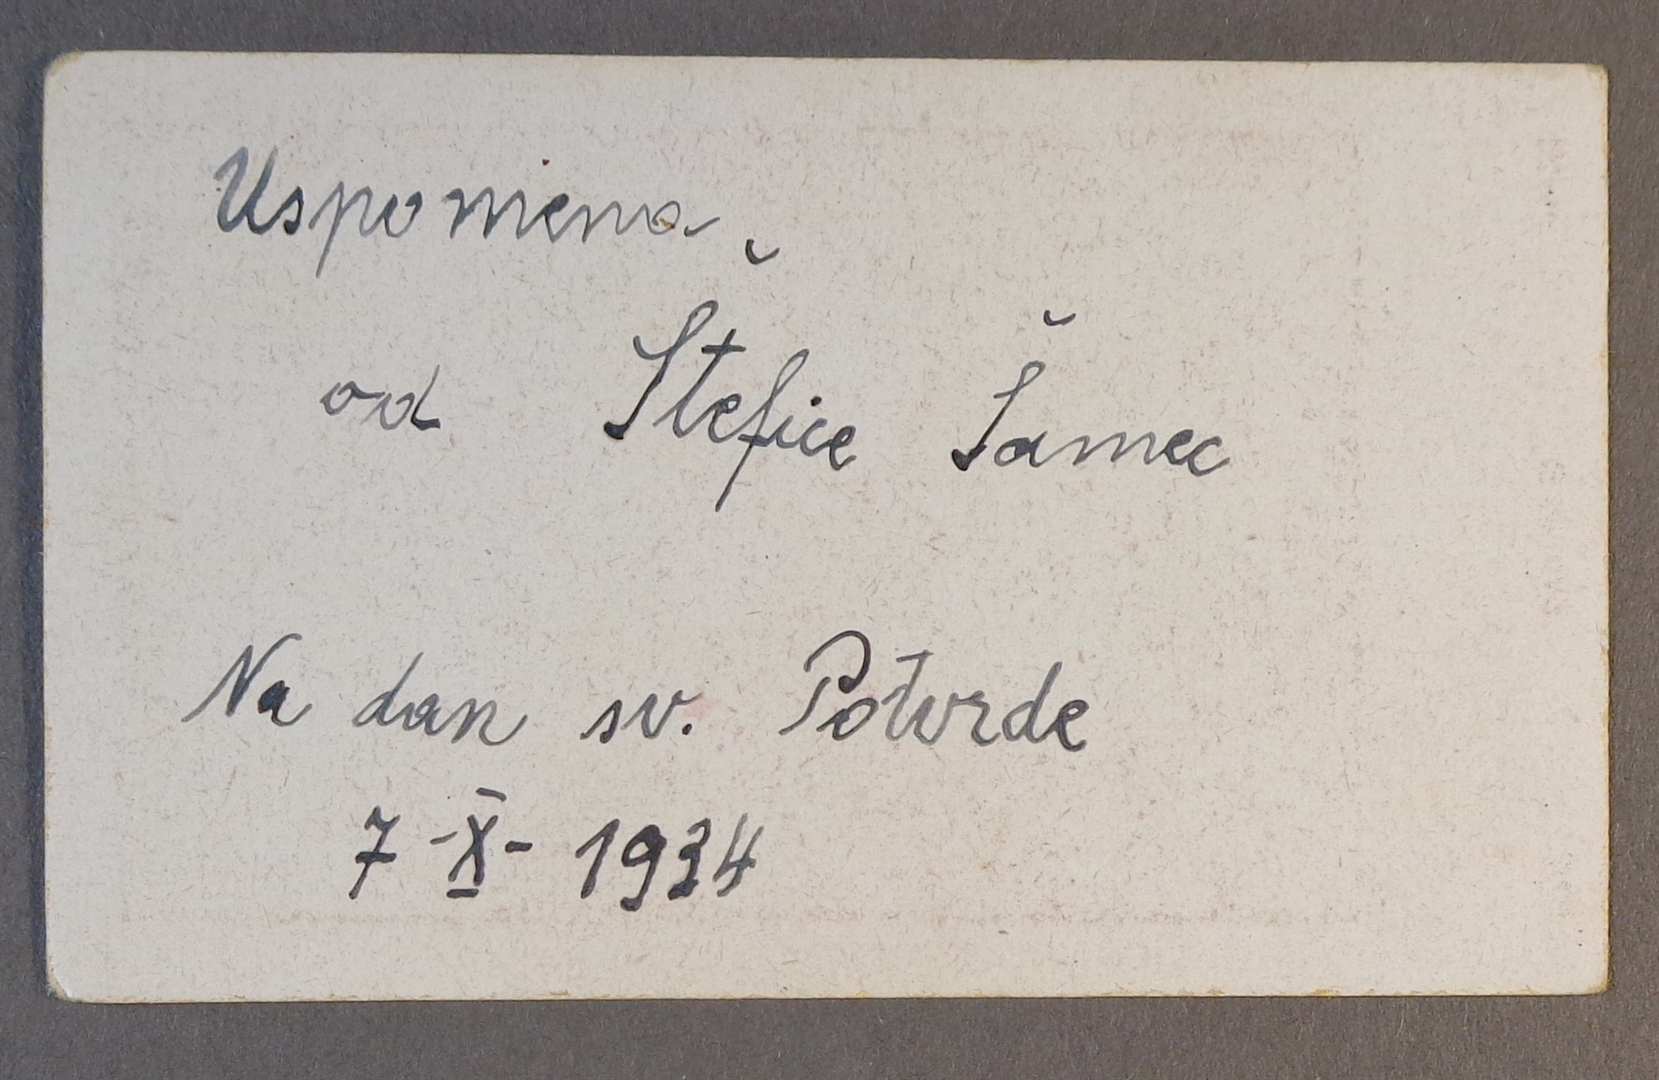 Uspomena
od Štefice Šamec
Na dan sv. Potvrde
7-X-1934